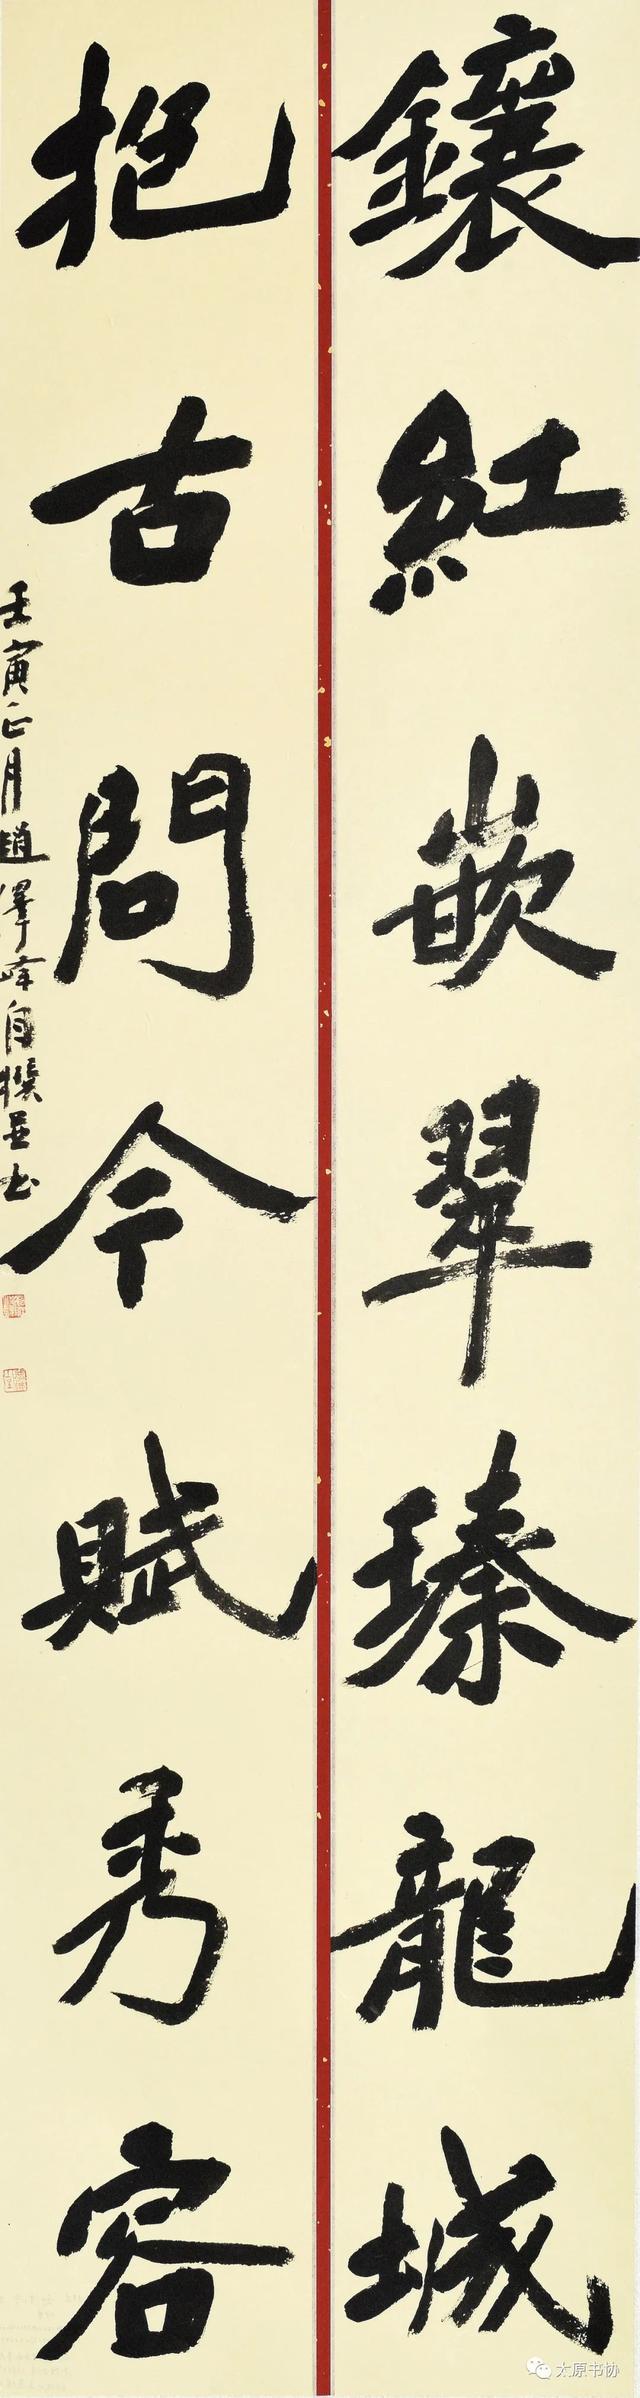 鑲紅嵌翠瑧龍城
挹古問今賦秀容
壬寅正月趙澤峰自撰並书
太原书协